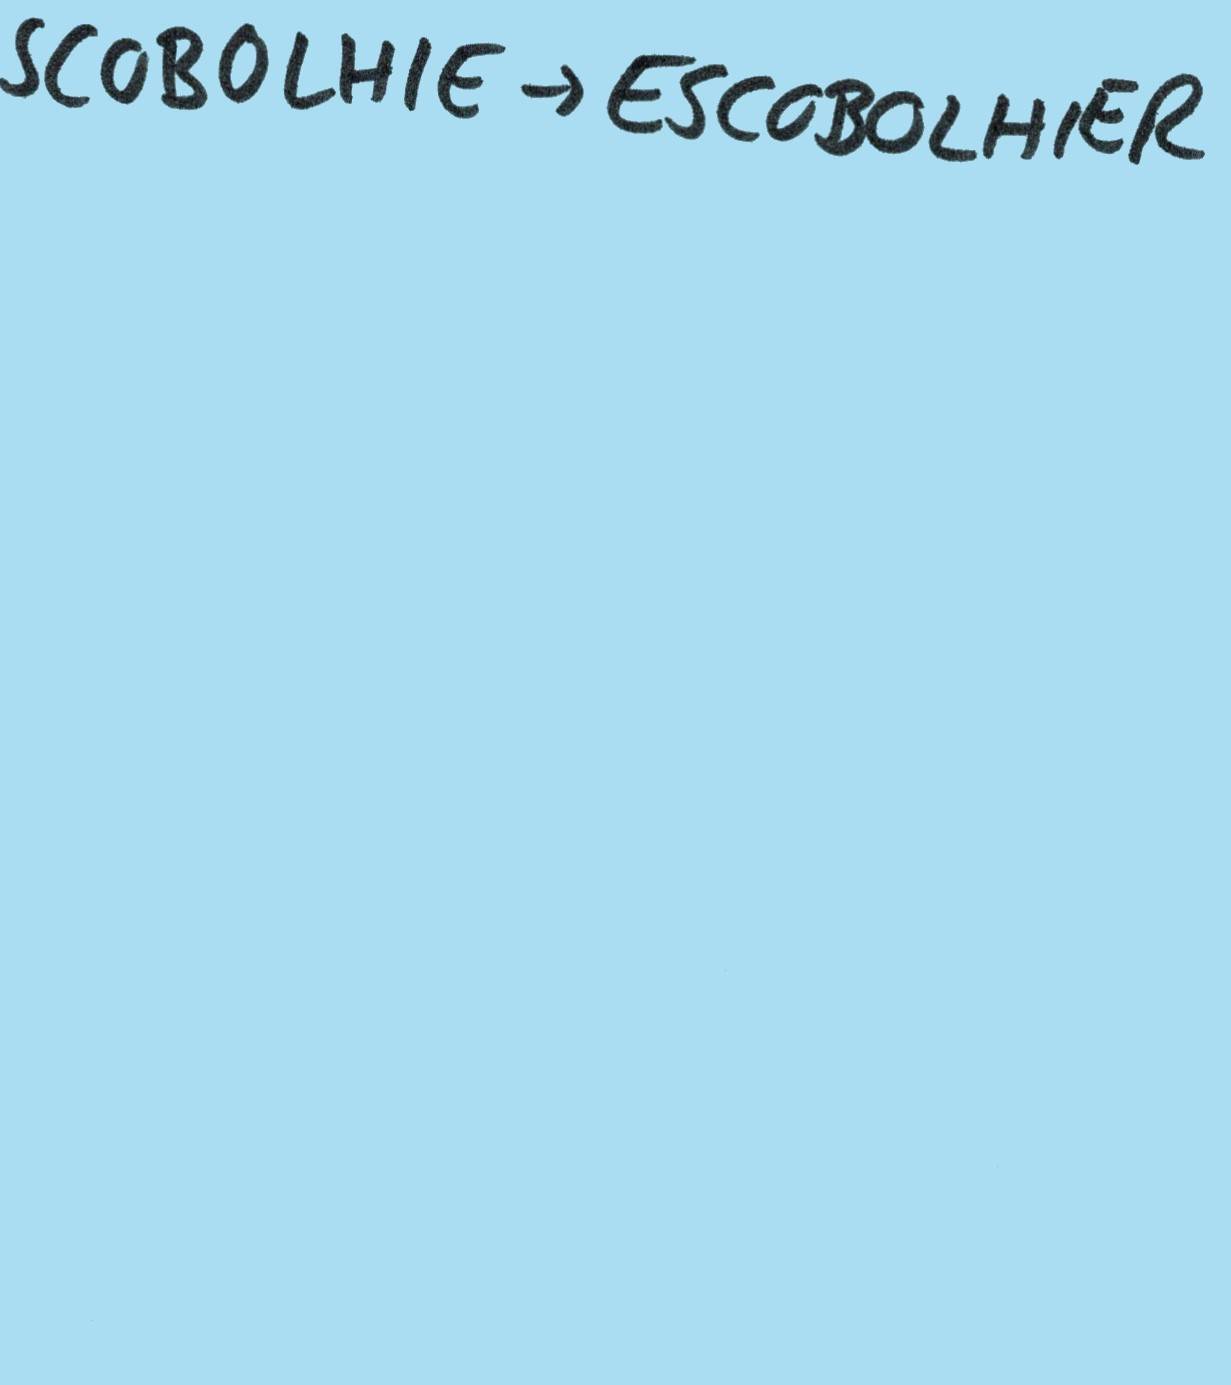 SCOBOLHIE → ESCOBOLHIER